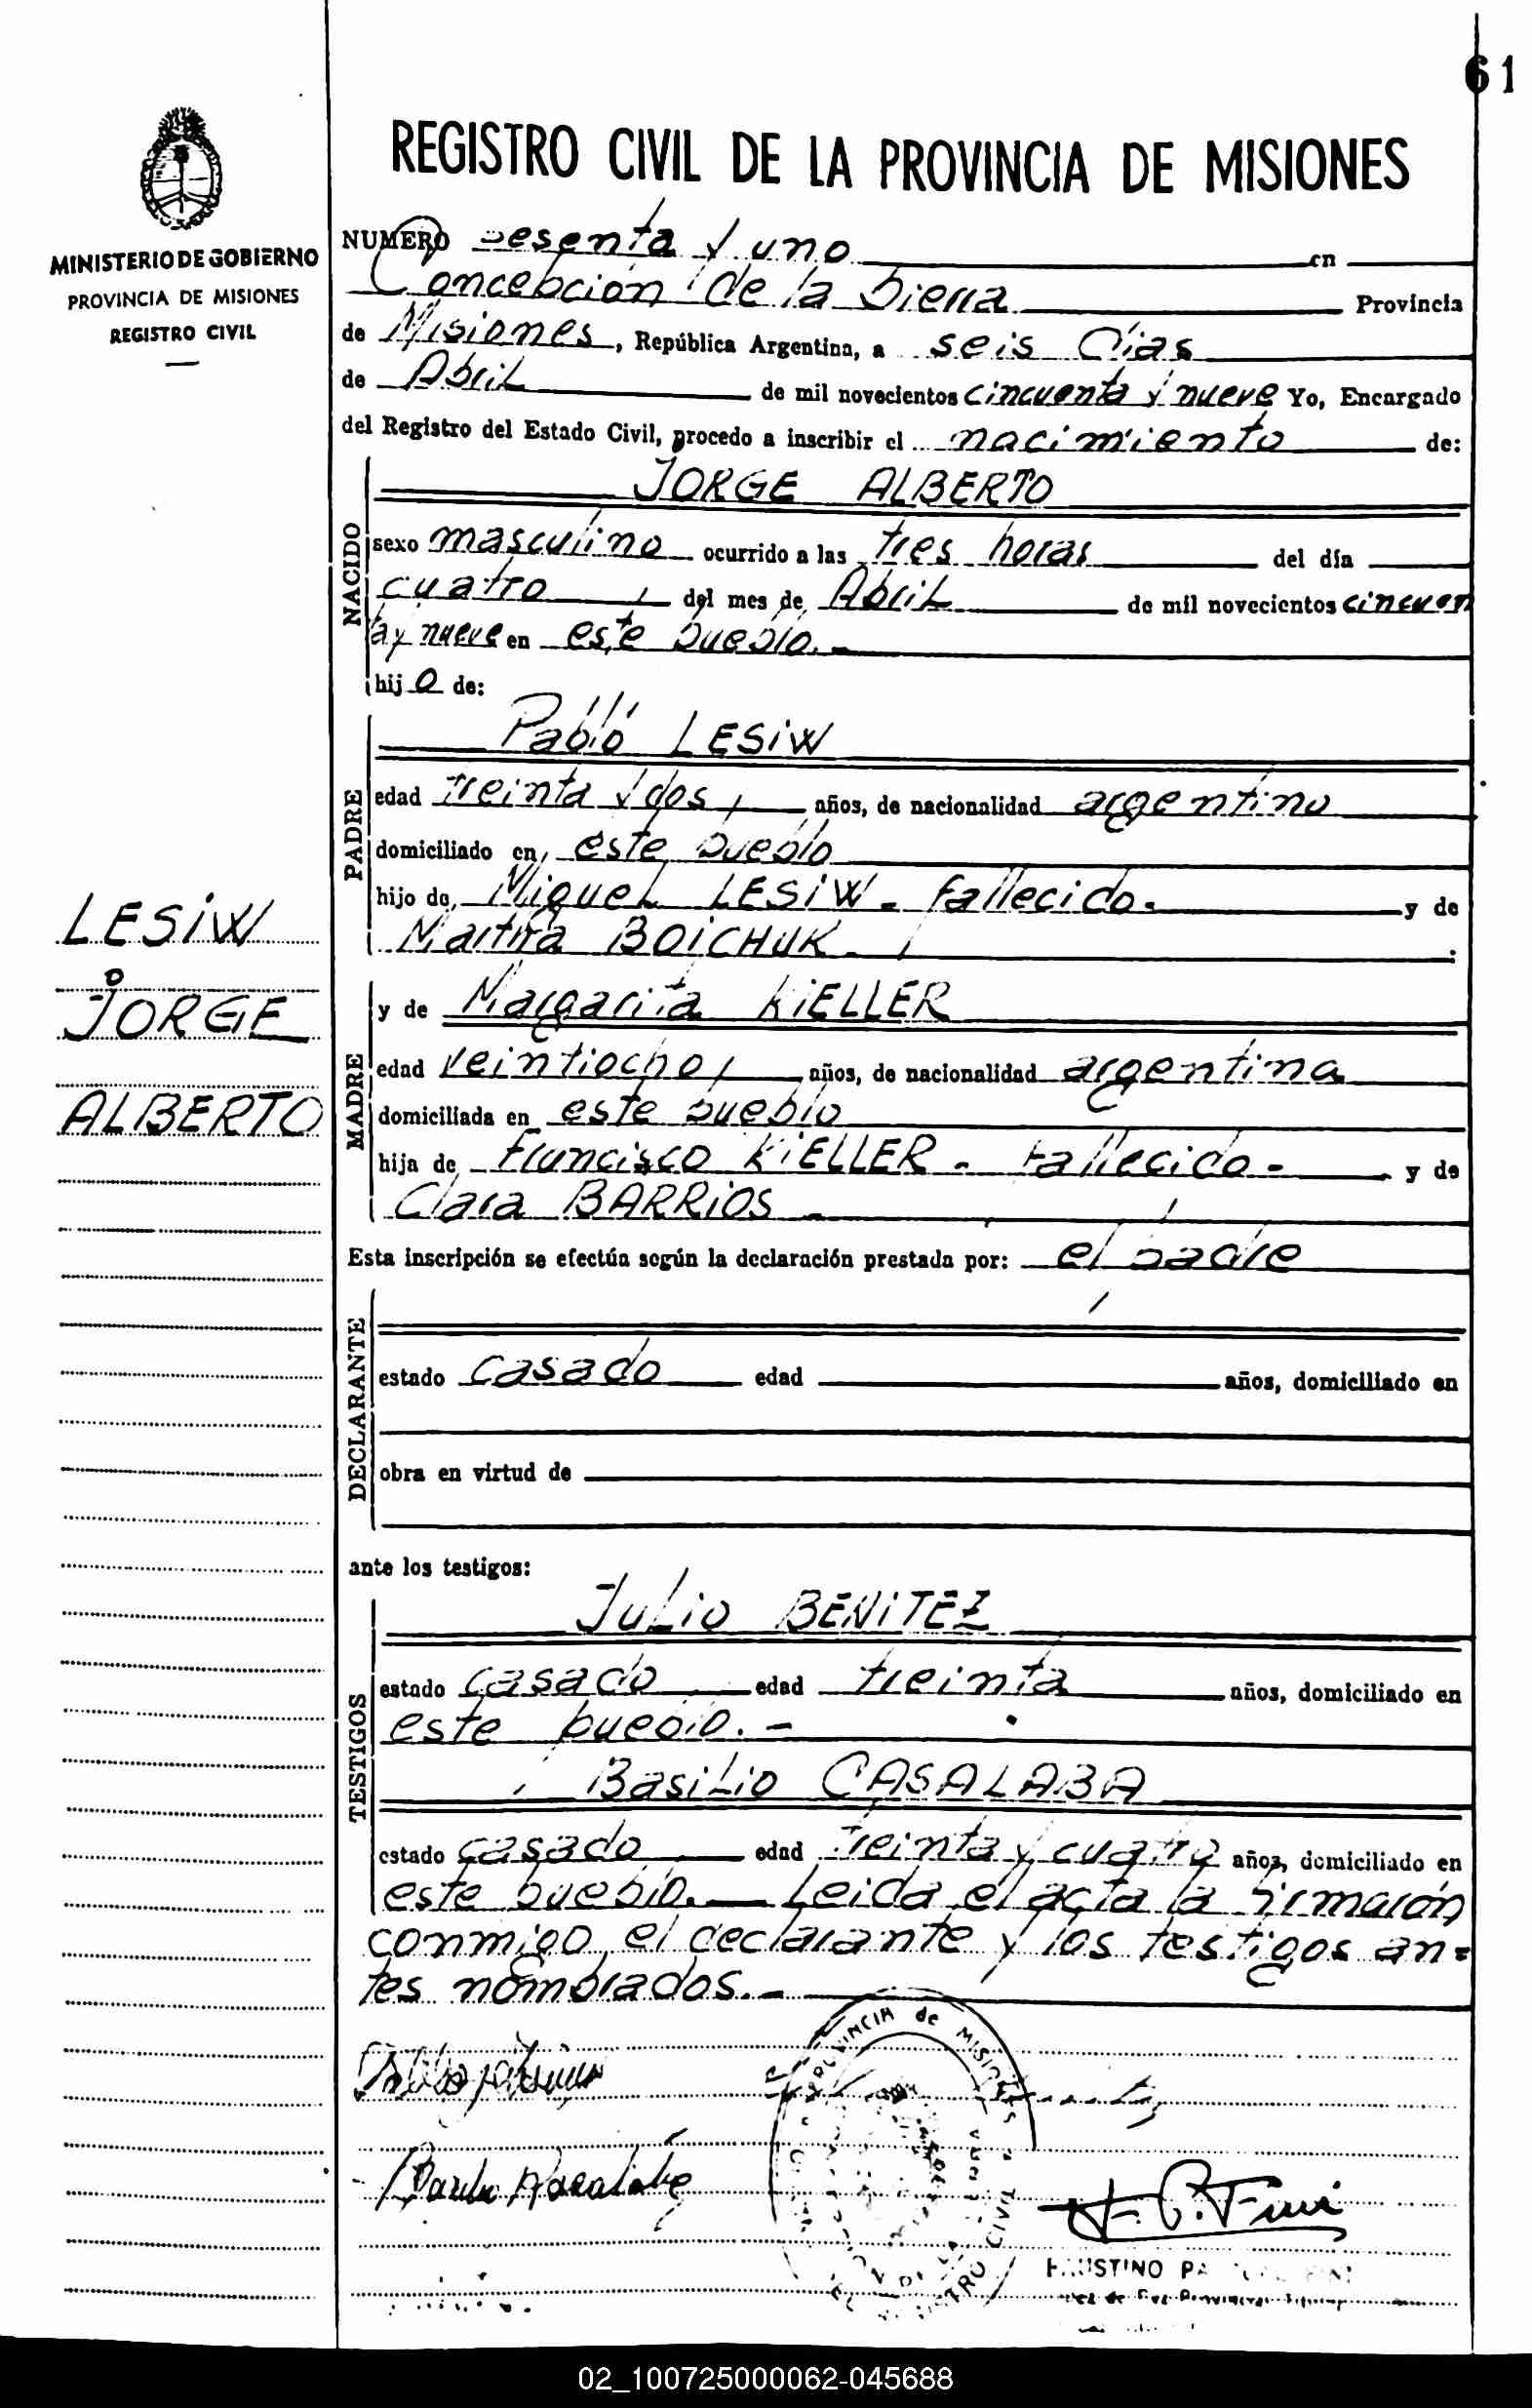 61
REGISTRO CIVIL DE LA PROVINCIA DE MISIONES
MINISTERIO DE GOBIERNO
PROVINCIA DE MISIONES
REGISTRO CIVIL
NUMERO Sesenta y uno en
Concepcion de la Sierra Provincia
de Misiones, República Argentina, a seis Dias
de Abril de mil novecientos cincuenta y nueve Yo, Encargado
del Registro del Estado Civil, procedo a inscribir el nacimiento de:
NACIDO
JORGE ALBERTO
sexo masculino ocurrido a las tres horas del día
cuatro del mes de Abril de mil novecientos cincuen
ta y nueve en este pueblo.-
hijo de:
PADRE
Pablo LESiW
edad Treinta y dos, años, de nacionalidad argentino
domiciliado en este pueblo
hijo de Miguel LESiW - fallecido. y de
Martina BOiCHUK.
LESiW
JORGE
ALBERTO
MADRE
y de Margarita KiELLER
edad veintiocho, años, de nacionalidad argentina
domiciliada en este pueblo
hija de Francisco KiELLER - Fallecido - y de
Clara BARRiOS
Esta inscripción se efectúa según la declaración prestada por: el padre
DECLARANTE
estado casado edad años, domiciliado en
obra en virtud de
ante los testigos:
TESTIGOS
JuLio BENiTEZ
estado casado edad treinta años, domiciliado en
este pueblo.-
BasiLio CASALABA
estado casado edad treinta y cuatro años, domiciliado en
este pueblo.- Leida el acta la firmarón
conmigo el declarante y los testigos an=
tes nombrados.-
PROVINCIA de MISIONES
F. P. Fini
FAUSTINO
02_100725000062-045688